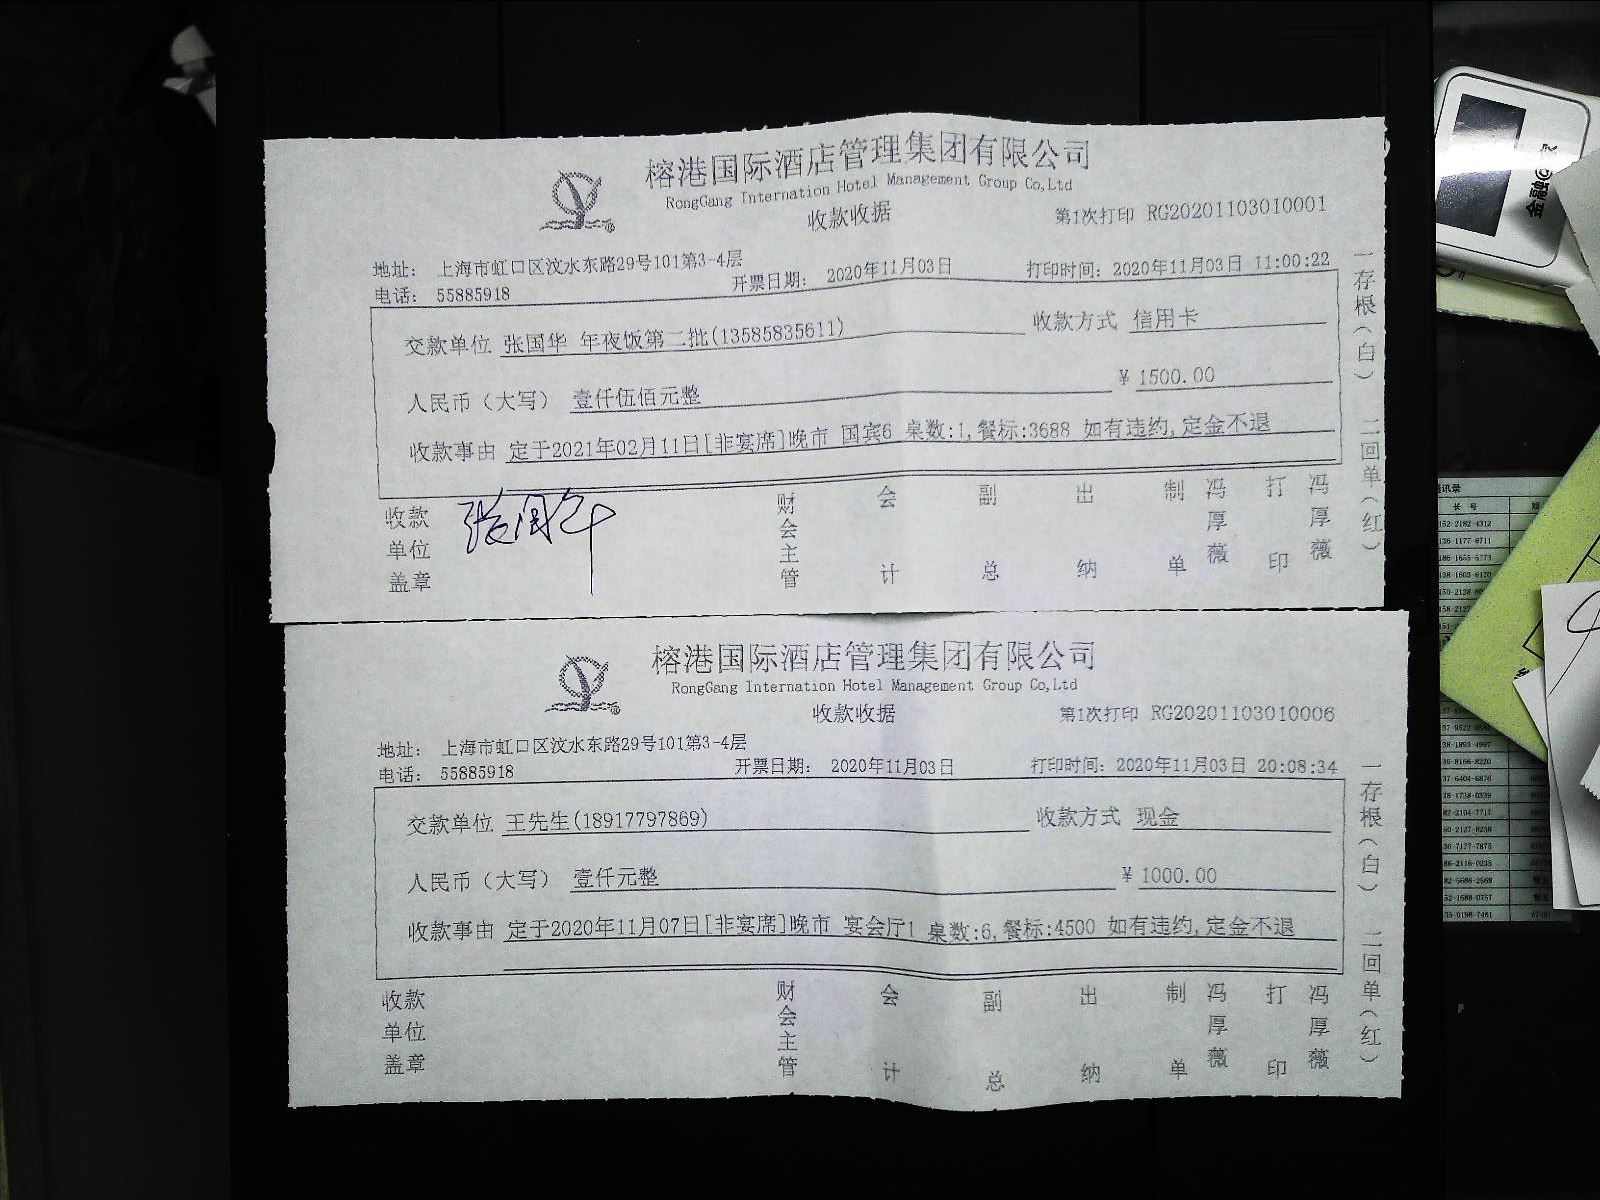 榕港国际酒店管理集团有限公司
RongGang Internation Hotel Management Group Co,Ltd
收款收据
第1次打印 RG20201103010001
地址： 上海市虹口区汶水东路29号101第3-4层
电话： 55885918
开票日期： 2020年11月03日
打印时间：2020年11月03日 11:00:22
交款单位 张国华 年夜饭第二批(13585835611)
收款方式 信用卡
人民币（大写） 壹仟伍佰元整
¥ 1500.00
收款事由 定于2021年02月11日[非宴席]晚市 国宾6 桌数:1,餐标:3688 如有违约,定金不退
收款单位盖章
张国华
财会主管
会计
副总
出纳
制单
冯厚薇
打印
冯厚薇
一存根（白） 二回单（红）
榕港国际酒店管理集团有限公司
RongGang Internation Hotel Management Group Co,Ltd
收款收据
第1次打印 RG20201103010006
地址： 上海市虹口区汶水东路29号101第3-4层
电话： 55885918
开票日期： 2020年11月03日
打印时间：2020年11月03日 20:08:34
交款单位 王先生(18917797869)
收款方式 现金
人民币（大写） 壹仟元整
¥ 1000.00
收款事由 定于2020年11月07日[非宴席]晚市 宴会厅1 桌数:6,餐标:4500 如有违约,定金不退
收款单位盖章
财会主管
会计
副总
出纳
制单
冯厚薇
打印
冯厚薇
一存根（白） 二回单（红）
金融